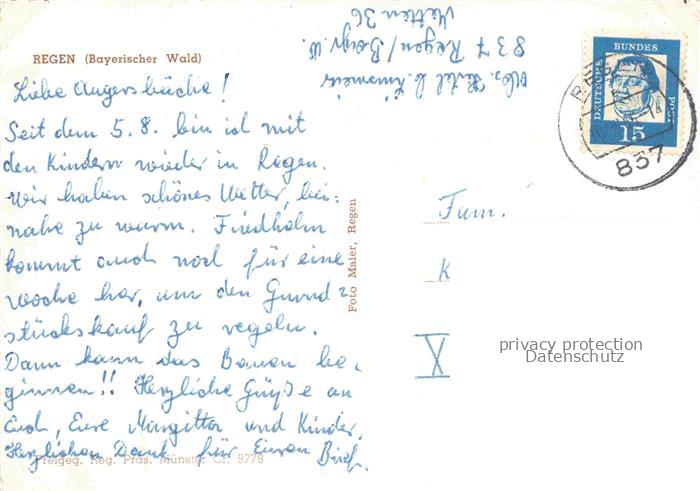 REGEN (Bayerischer Wald)
Liebe Angersbäche!
Seit dem 5.8. bin ich mit
den Kindern wieder in Regen.
Wir haben schönes Wetter, bei=
nahe zu warm. Friedhelm
kommt auch noch für eine
Woche her, um den Grund=
stückskauf zu regeln.
Dann kann das Bauen be=
ginnen!! Herzliche Grüße an
Euch, Eure Margitta und Kinder.
Herzlichen Dank für Euren Brief.
Freigeg. Reg. Präs. Münster Cr. 9778
Foto Maier, Regen
837 Regen/Bayr. W.
Metten 36
DEUTSCHE
BUNDES
POST
15
REGEN
837
Fam.
K
X
privacy protection
Datenschutz